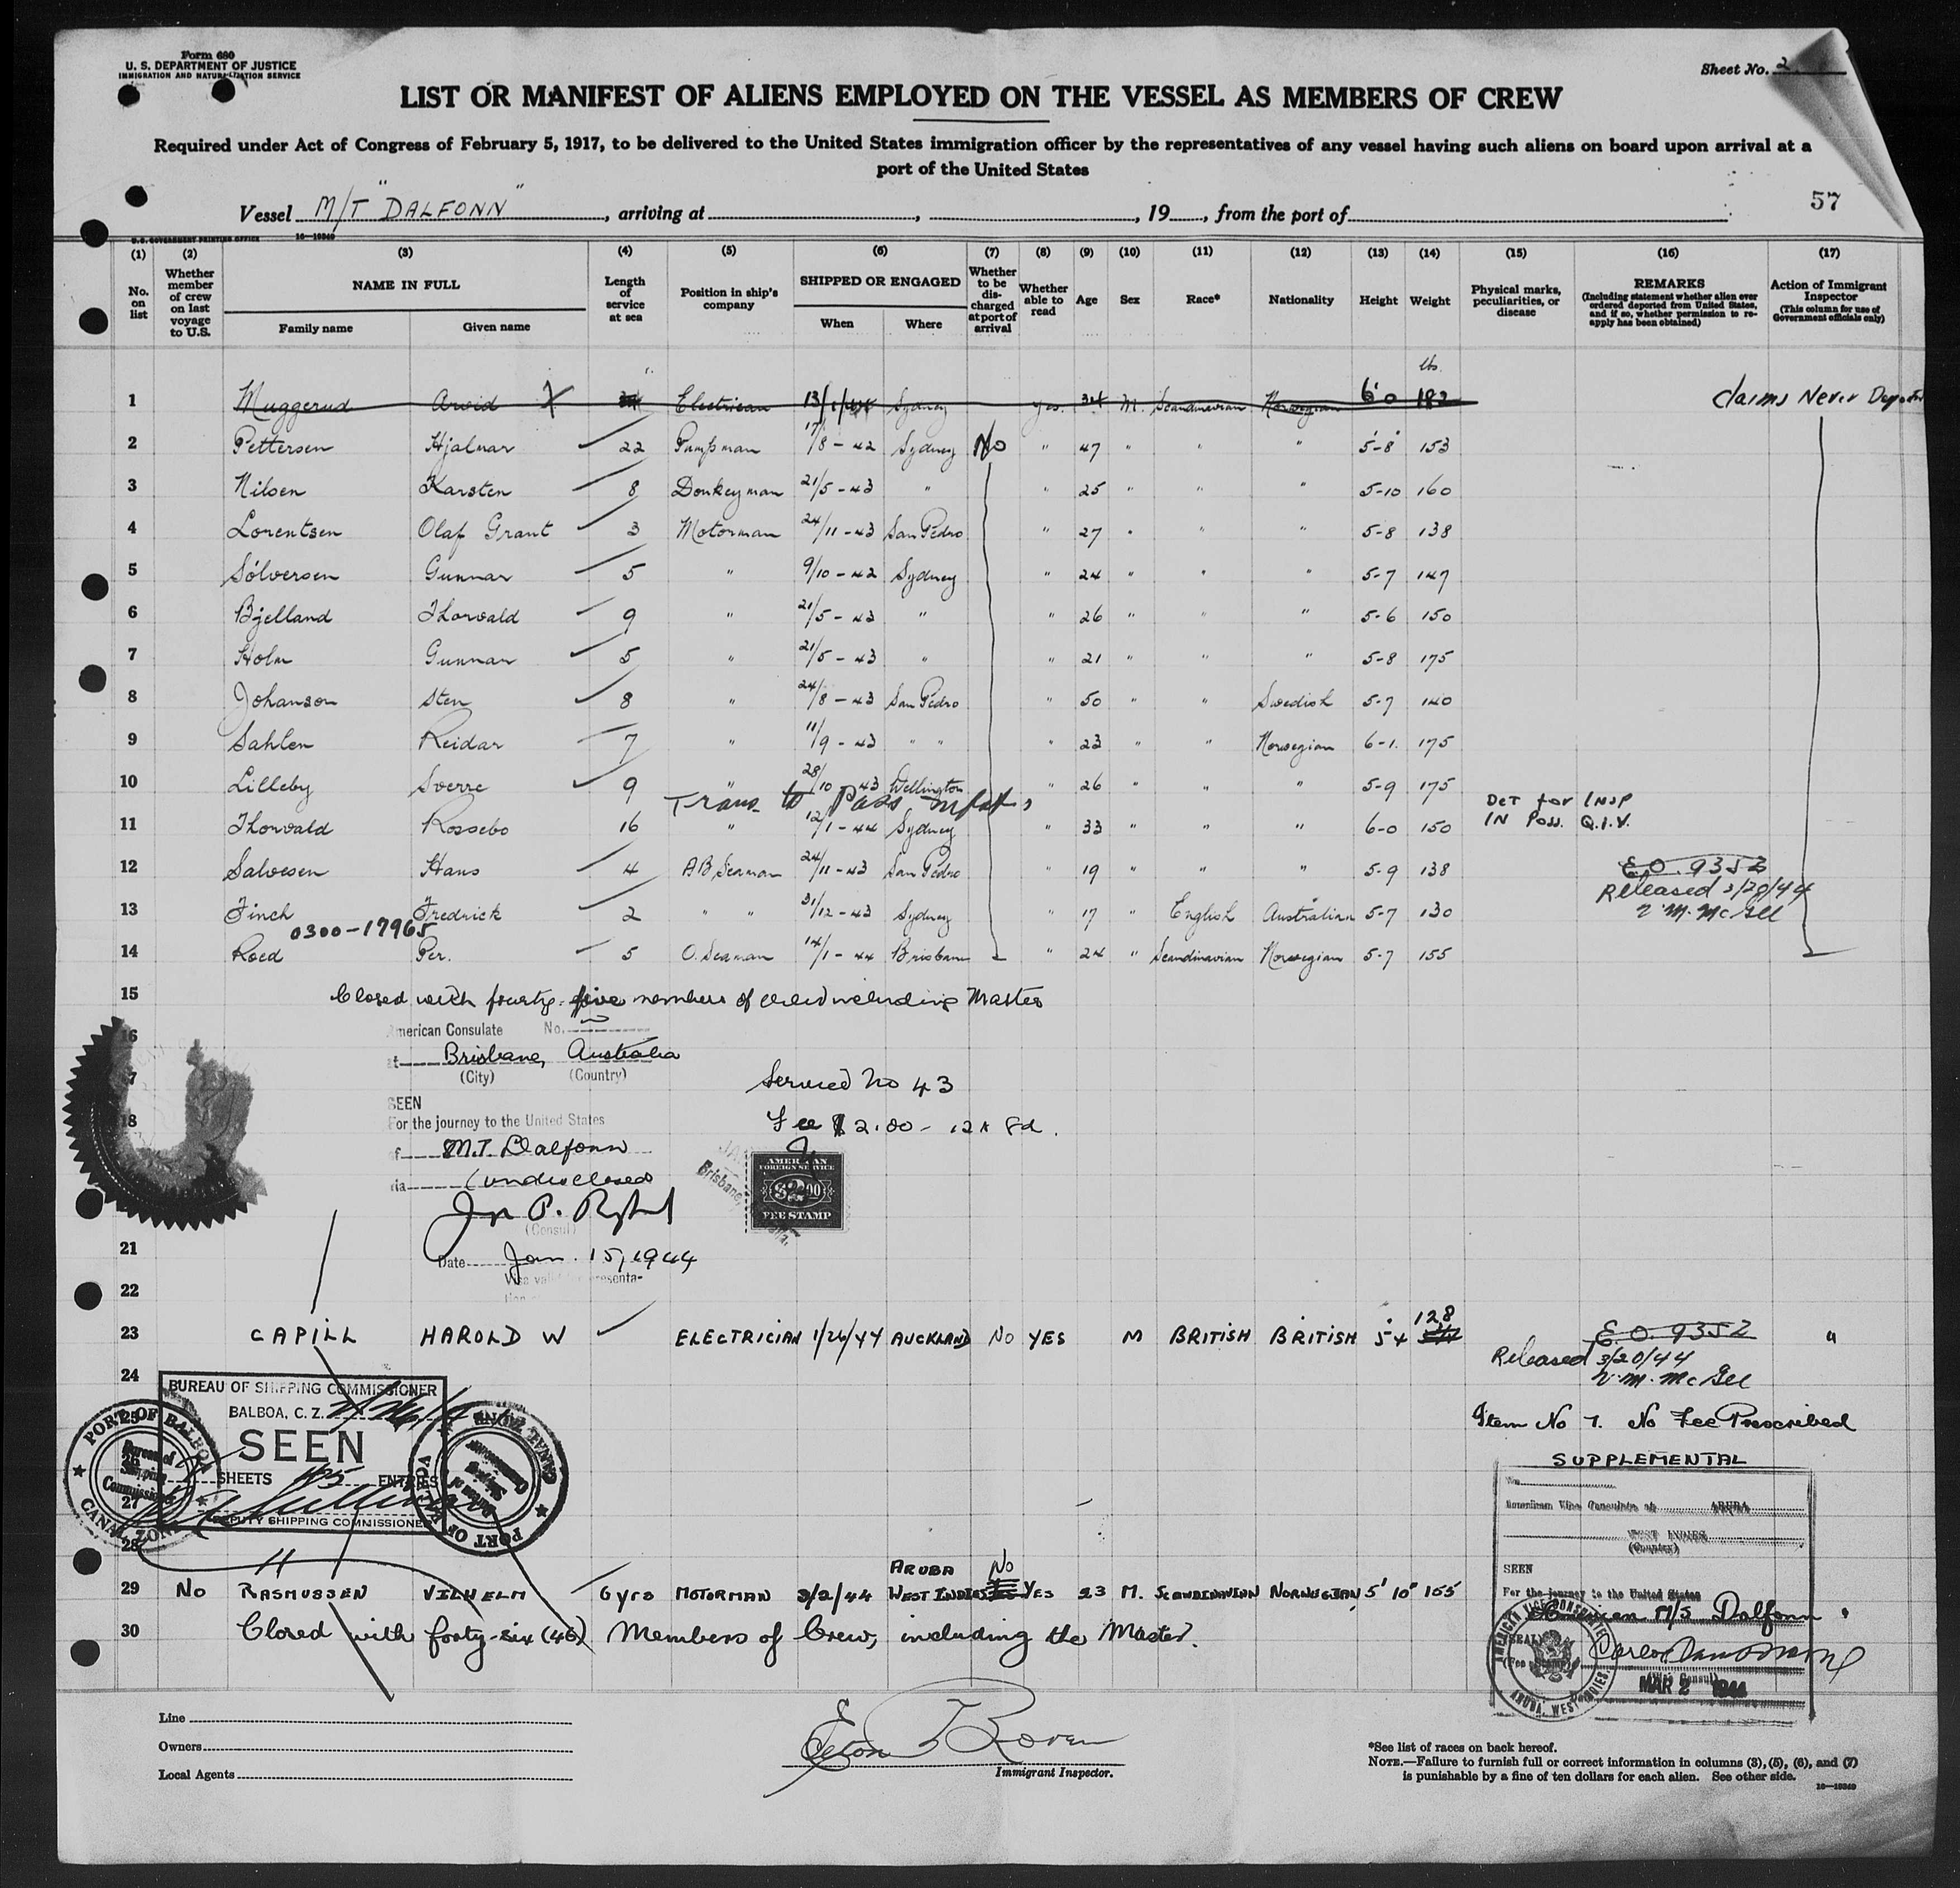 Form 680
U. S. DEPARTMENT OF JUSTICE
IMMIGRATION AND NATURALIZATION SERVICE
Sheet No. 2
LIST OR MANIFEST OF ALIENS EMPLOYED ON THE VESSEL AS MEMBERS OF CREW
Required under Act of Congress of February 5, 1917, to be delivered to the United States immigration officer by the representatives of any vessel having such aliens on board upon arrival at a
port of the United States
57
Vessel M/T "DALFONN", arriving at , , 19 , from the port of
U. S. GOVERNMENT PRINTING OFFICE 16—19340
(1) No. on list
(2) Whether member of crew on last voyage to U.S.
(3) NAME IN FULL
Family name Given name
(4) Length of service at sea
(5) Position in ship's company
(6) SHIPPED OR ENGAGED
When Where
(7) Whether to be discharged at port of arrival
(8) Whether able to read
(9) Age
(10) Sex
(11) Race*
(12) Nationality
(13) Height
(14) Weight
(15) Physical marks, peculiarities, or disease
(16) REMARKS
(Including statement whether alien ever ordered deported from United States, and if so, whether permission to re-apply has been obtained)
(17) Action of Immigrant Inspector
(This column for use of Government officials only)
lbs.
1 Muggerud Arvid X Electrician 13/1/44 Sydney yes. 34 M. Scandinavian Norwegian 6'0 192 Claims Never
2 Pettersen Hjalmar 22 Pumpman 17/8-42 Sydney No " 47 " " " 5-8 153
3 Nilsen Karsten 8 Donkeyman 21/5-43 " " 25 " " " 5-10 160
4 Lorentsen Olaf Grant 3 Motorman 24/11-43 San Pedro " 27 " " 5-8 138
5 Sølversen Gunnar 5 " 9/10-42 Sydney " 24 " " " 5-7 147
6 Bjelland Thorvald 9 " 21/5-43 " " 26 " " " 5-6 150
7 Holm Gunnar 5 " 21/5-43 " " 21 " " " 5-8 175
8 Johanson Sten 8 " 24/8-43 San Pedro " 50 " " Swedish 5-7 140
9 Sahlen Reidar 7 " 11/9-43 " " " 23 " " Norwegian 6-1. 175
10 Lilleby Sverre 9 " 28/10 43 Wellington " 26 " " " 5-9 175
Trans to Pass
Det for Insp
in Poss. Q.I.V.
11 Thorvald Rossebo 16 " 12/1-44 Sydney " 33 " " " 6-0 150
12 Salvesen Hans 4 AB Seaman 24/11-43 San Pedro " 19 " " " 5-9 138 E.O. 9352
Released 3/20/44
V. M. McGee
13 Finch Fredrick 2 " " 31/12-43 Sydney " 17 " English Australian 5-7 130
0300-17965
14 Roed Per. 5 O. Seaman 14/1-44 Brisbane " 24 " Scandinavian Norwegian 5-7 155
15 Closed with fourty-five members of crew including Master
16 American Consulate No.
at Brisbane, Australia
(City) (Country)
17
Service No 43
SEEN
18 For the journey to the United States
Fee $2.00 - 12s 8d.
of M.T. Dalfonn
via (undisclosed
(Consul)
AMERICAN
FOREIGN SERVICE
$2.00
FEE STAMP
Brisbane,
21
Date Jan. 15, 1944
22
23 CAPILL HAROLD W ELECTRICIAN 1/26/44 AUCKLAND NO YES M BRITISH BRITISH 5 4 128 E.O. 9352 "
Released 3/20/44
V. M. McGee
24
BUREAU OF SHIPPING COMMISSIONER
BALBOA, C. Z.
SEEN
SHEETS 45 ENTRIES
DEPUTY SHIPPING COMMISSIONER
25
26
27
28
PORT OF BALBOA
Bureau of Shipping Commissioner
CANAL ZONE
PORT OF BALBOA
CANAL ZONE
Item No 7. No Fee Prescribed
SUPPLEMENTAL
No.
American Vice Consulate at ARUBA
WEST INDIES
(Country)
SEEN
For the journey to the United States
M/S Dalfonn
(SEAL)
(Fee Stamp)
AMERICAN VICE CONSULATE
ARUBA, WEST INDIES
(Vice Consul)
MAR 2 1944
29 No RASMUSSEN VILHELM 6 yrs MOTORMAN 3/2/44 ARUBA WEST INDIES No YES 23 M. SCANDINAVIAN NORWEGIAN 5' 10" 155
30 Closed with forty-six (46) Members of Crew, including the Master.
Line
Owners
Local Agents
Immigrant Inspector.
*See list of races on back hereof.
NOTE.—Failure to furnish full or correct information in columns (3), (5), (6), and (7)
is punishable by a fine of ten dollars for each alien. See other side.
16—19340